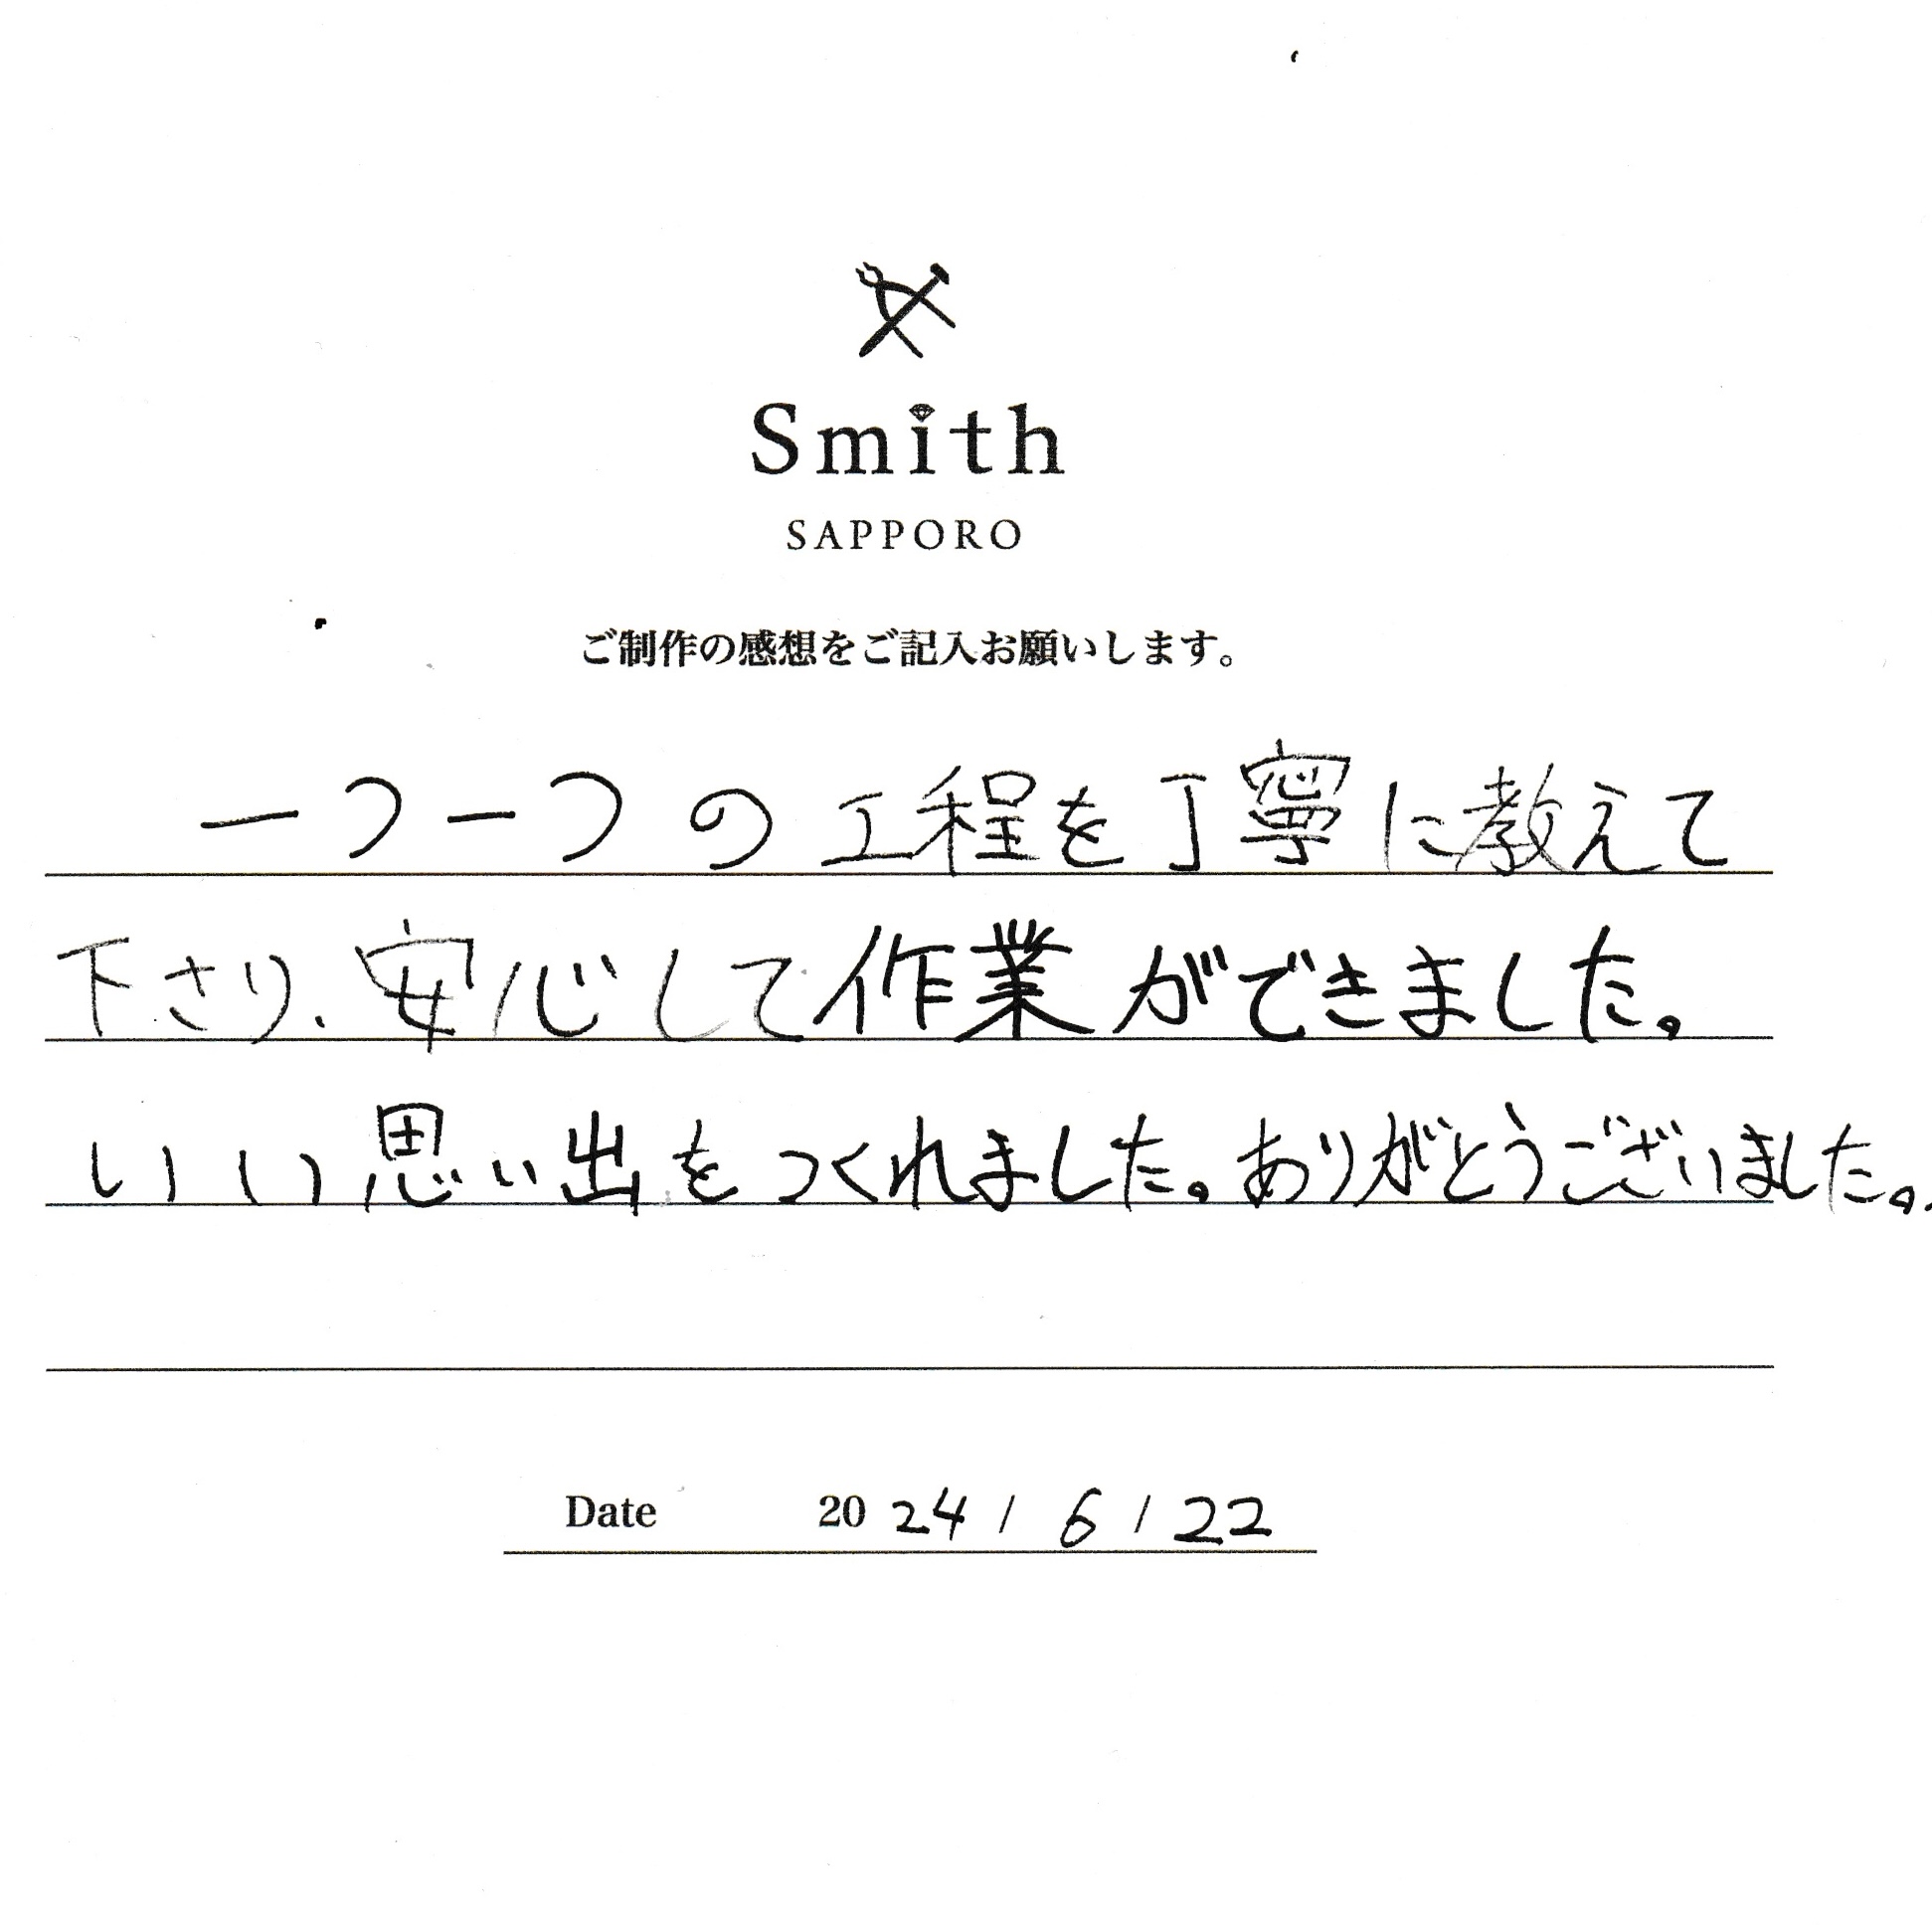 Smith
SAPPORO
ご制作の感想をご記入お願いします。
一つ一つの工程を丁寧に教えて
下さり、安心して作業ができました。
いい思い出をつくれました。ありがとうございました。
Date 2024/6/22